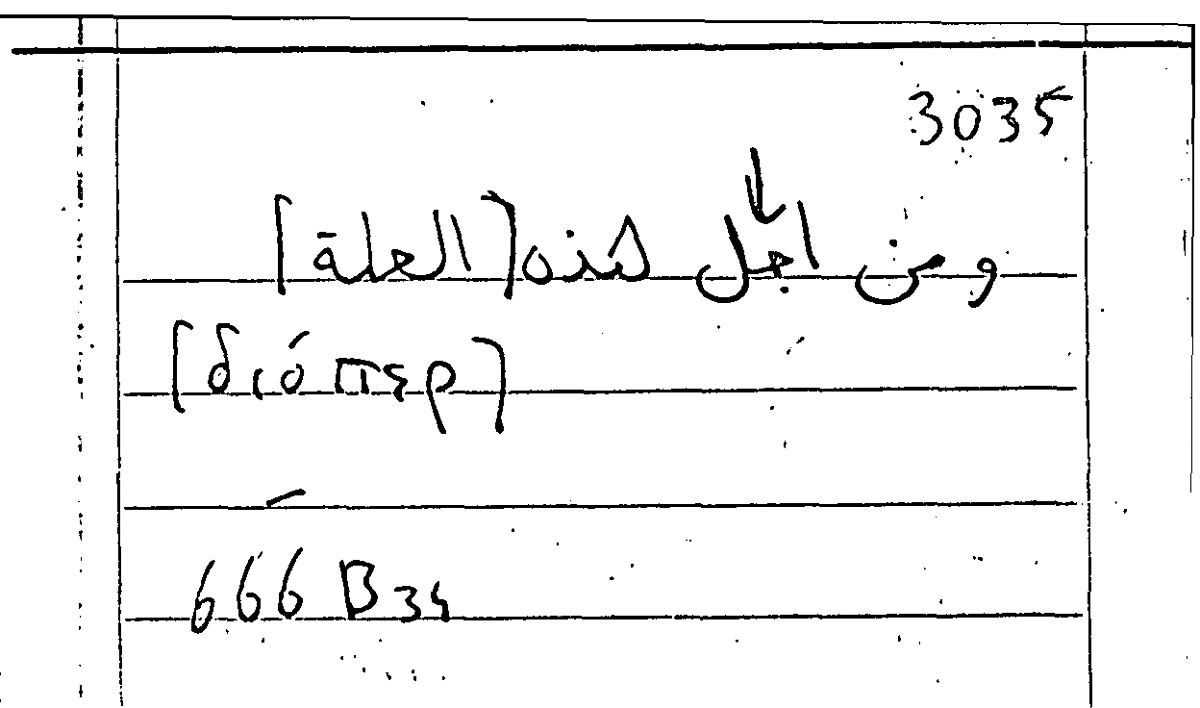 3035
ومن اجل هذه [العلة]
[διόπερ]
666 B 34